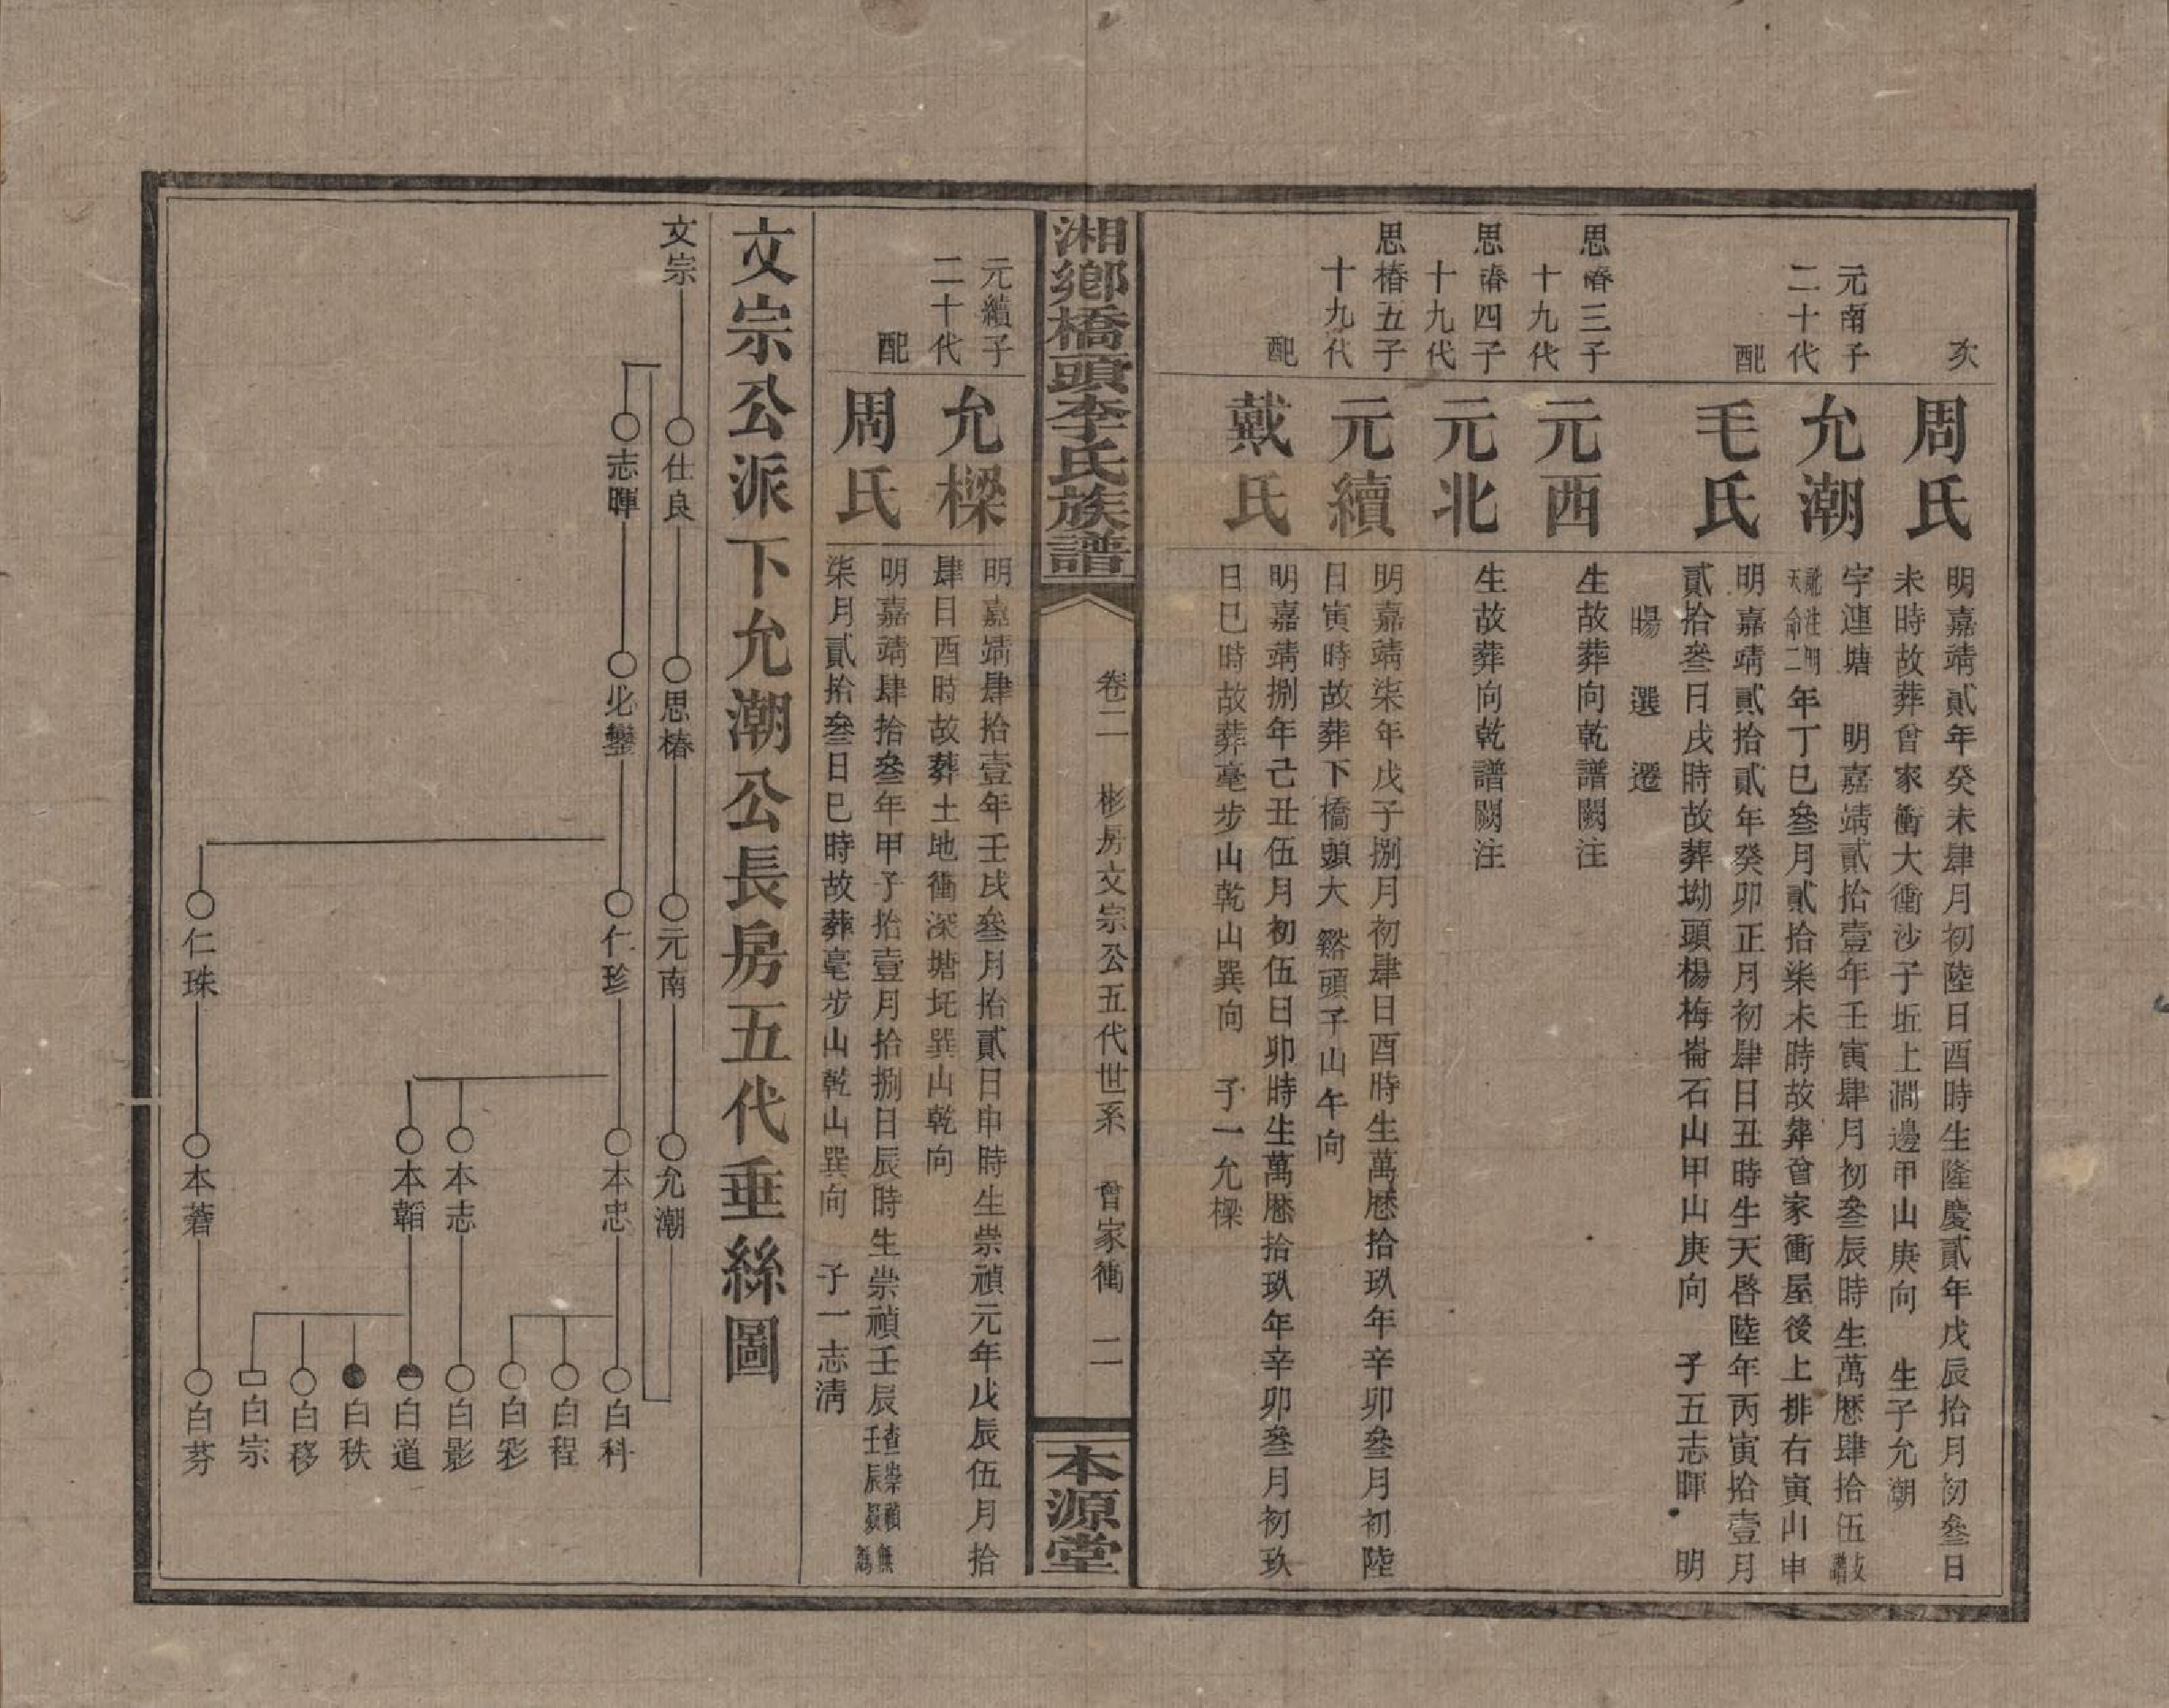 亥
周氏
明嘉靖貳年癸未肆月初陸日酉時生隆慶貳年戊辰拾月初叁日
未時故葬曾家衝大衝沙子坵上澗邊甲山庚向　生子允潮
元南子
二十代
允潮
字連塘　明嘉靖貳拾壹年壬寅肆月初叁辰時生萬歷肆拾伍
年丁巳叁月貳拾柒未時故葬曾家衝屋後上排右寅山申
配
毛氏
明嘉靖貳拾貳年癸卯正月初肆日丑時生天啓陸年丙寅拾壹月
貳拾叁日戌時故葬坳頭楊梅崙石山甲山庚向　子五志暉　明
暘　選　遷
思椿三子
十九代
元西
生故葬向乾譜闕注
思椿四子
十九代
元北
生故葬向乾譜闕注
思椿五子
十九代
元續
明嘉靖柒年戊子捌月初肆日酉時生萬歷拾玖年辛卯叁月初陸
日寅時故葬下橋頭大谿頭子山午向
配
戴氏
明嘉靖捌年己丑伍月初伍日卯時生萬歷拾玖年辛卯叁月初玖
日巳時故葬亳步山乾山巽向　子一允樑
湘鄉橋頭李氏族譜
卷二　彬房文宗公五代世系　曾家衝　二
本源堂
元續子
二十代
允樑
明嘉靖肆拾壹年壬戌叁月拾貳日申時生崇禎元年戊辰伍月拾
肆日酉時故葬土地衝深塘坵巽山乾向
配
周氏
明嘉靖肆拾叁年甲子拾壹月拾捌日辰時生崇禎壬辰
查崇禎無
壬辰疑譌
柒月貳拾叁日巳時故葬亳步山乾山巽向　子一志淸
文宗公派下允潮公長房五代垂絲圖
文宗
仕良
思椿
元南
允潮
志暉
必鑾
仁珍
本忠
白科
白程
白彩
本志
白影
本韜
白道
白秩
白移
白宗
仁珠
本蓍
白芬